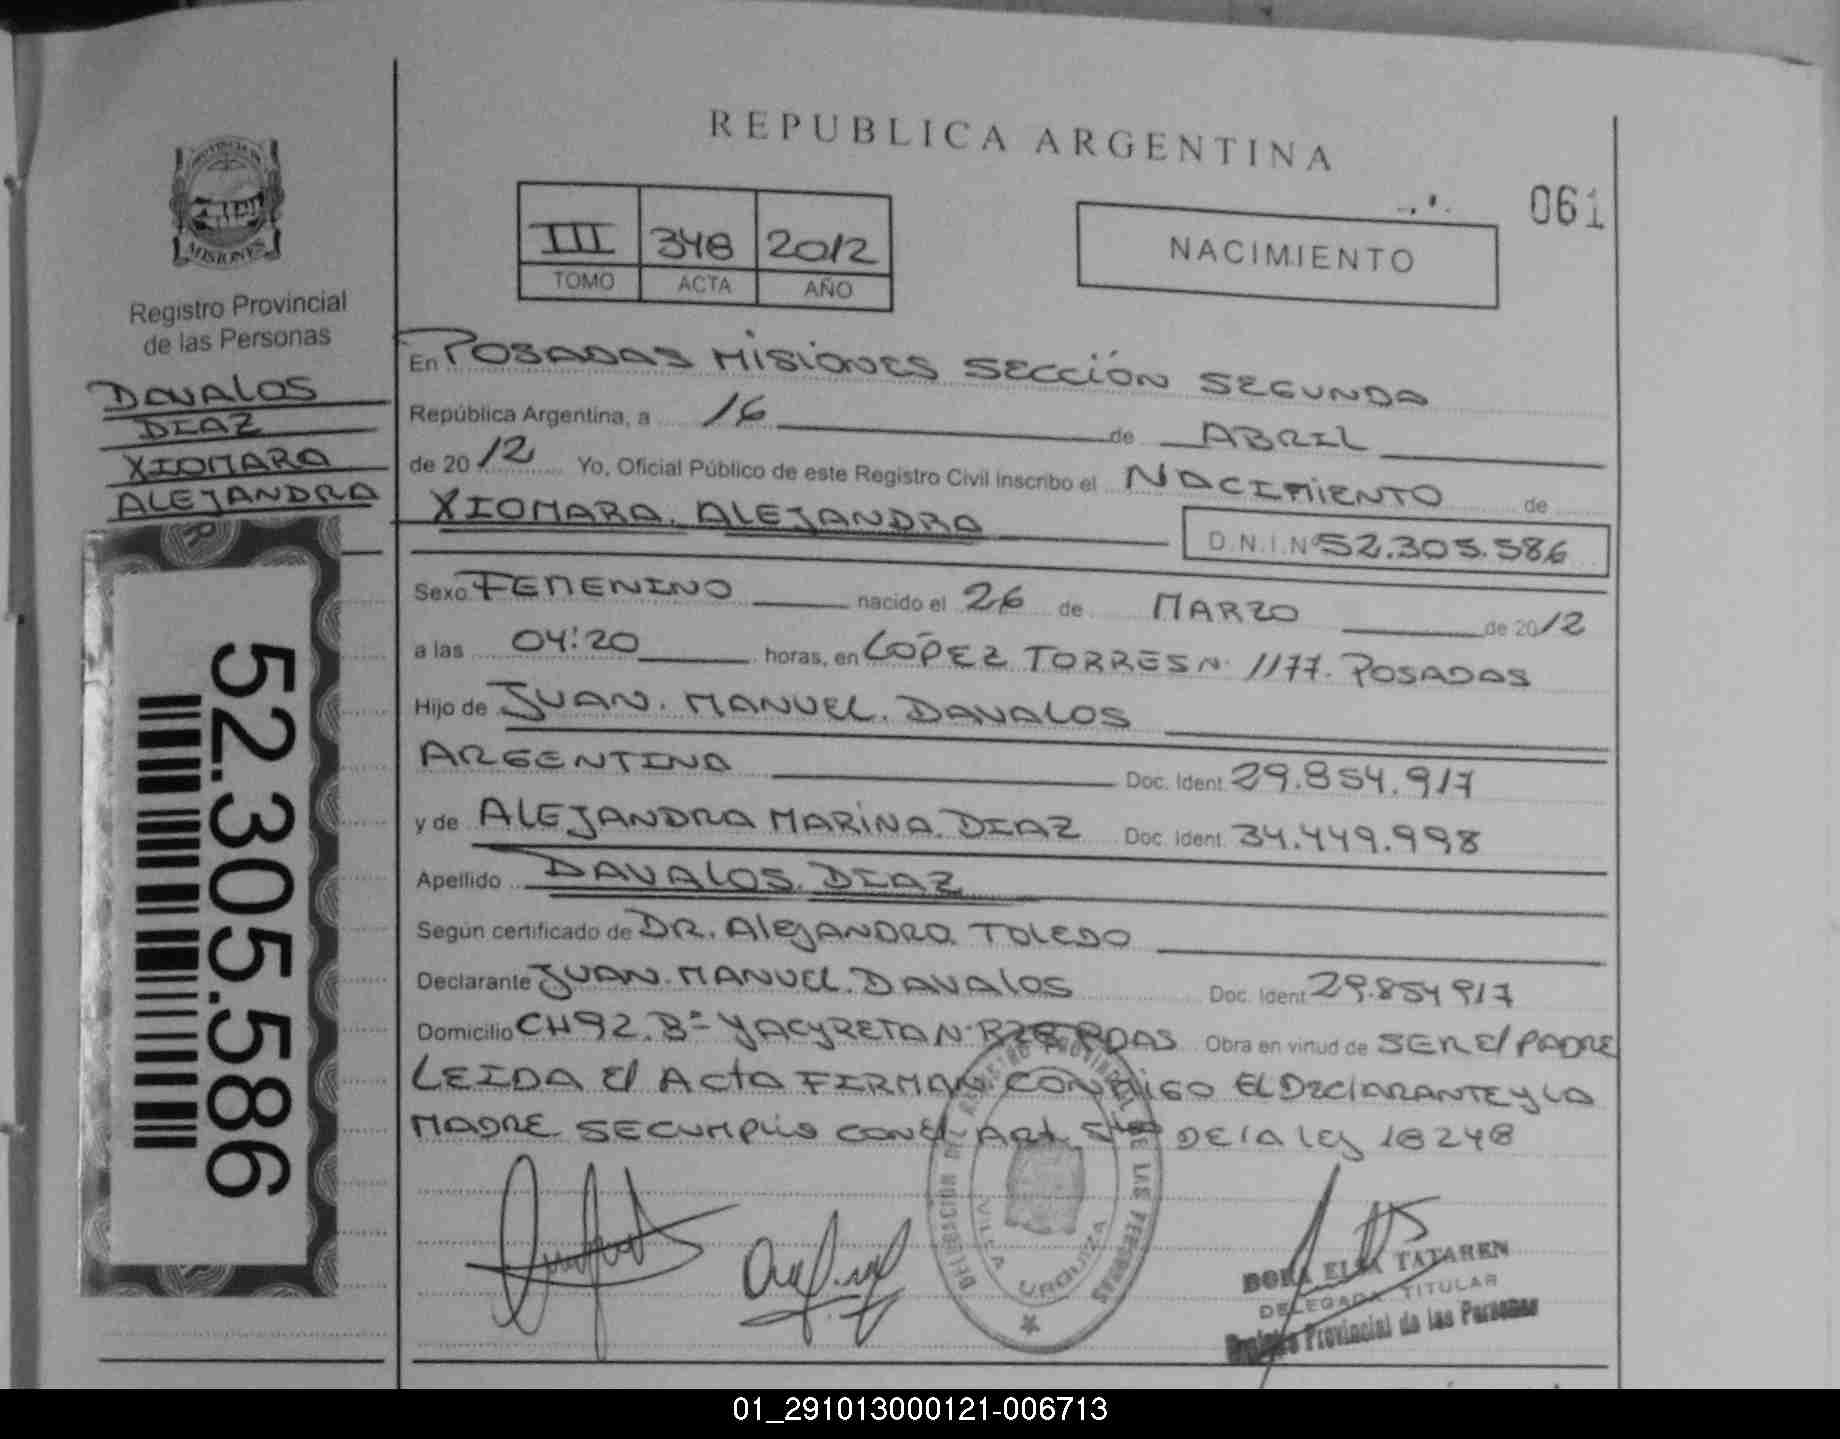 REPUBLICA ARGENTINA
061
III 348 2012
TOMO ACTA AÑO
NACIMIENTO
PROVINCIA DE
MISIONES
Registro Provincial
de las Personas
DAVALOS
DIAZ
XIOMARA
ALEJANDRA
52.305.586
En POSADAS MISIONES SECCIÓN SEGUNDA
República Argentina, a 16 de ABRIL
de 2012 Yo, Oficial Público de este Registro Civil Inscribo el NACIMIENTO de
XIOMARA. ALEJANDRA D.N.I.Nº 52.305.586
Sexo FEMENINO nacido el 26 de MARZO de 2012
a las 04:20 horas, en LÓPEZ TORRES N 1177. POSADAS
Hijo de JUAN. MANUEL. DAVALOS
ARGENTINA Doc. Ident. 29.854.917
y de ALEJANDRA MARINA. DIAZ Doc. Ident. 34.449.998
Apellido DAVALOS. DIAZ
Según certificado de DR. AlEJANDRO TOLEDO
Declarante JUAN. MANUEL. DAVAlOS Doc. Ident. 29.854917
Domicilio CH92. Bº YACYRETA N: PDAS Obra en virtud de SER El PADRE
LEIDA El ACTA FIRMAN CONMIGO EL DEClARANTE y LA
MADRE SE CUMPLIO CON El ART. 5to DE lA ley 18248
DELEGACIÓN DEL REGISTRO PROVINCIAL DE LAS PERSONAS
VILLA URQUIZA
DORA ELSA TATAREN
DELEGADA TITULAR
Registro Provincial de las Personas
01_291013000121-006713